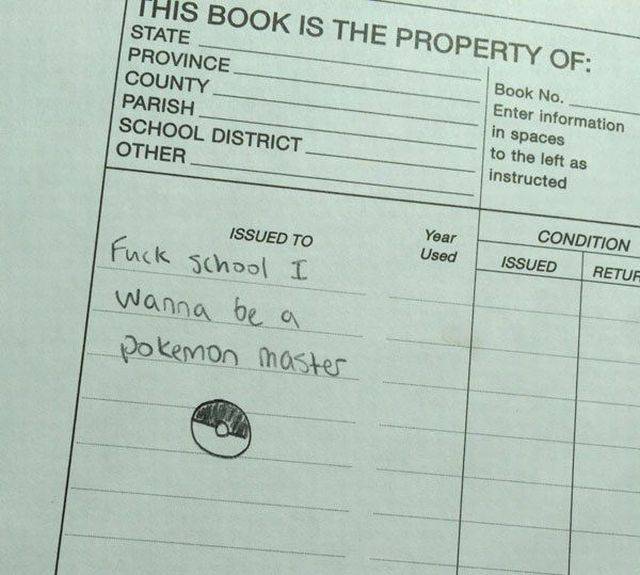 THIS BOOK IS THE PROPERTY OF:
STATE
PROVINCE
COUNTY
PARISH
SCHOOL DISTRICT
OTHER
Book No.
Enter information
in spaces
to the left as
instructed
ISSUED TO
Year
Used
CONDITION
ISSUED
RETUR
Fuck school I
wanna be a
pokemon master